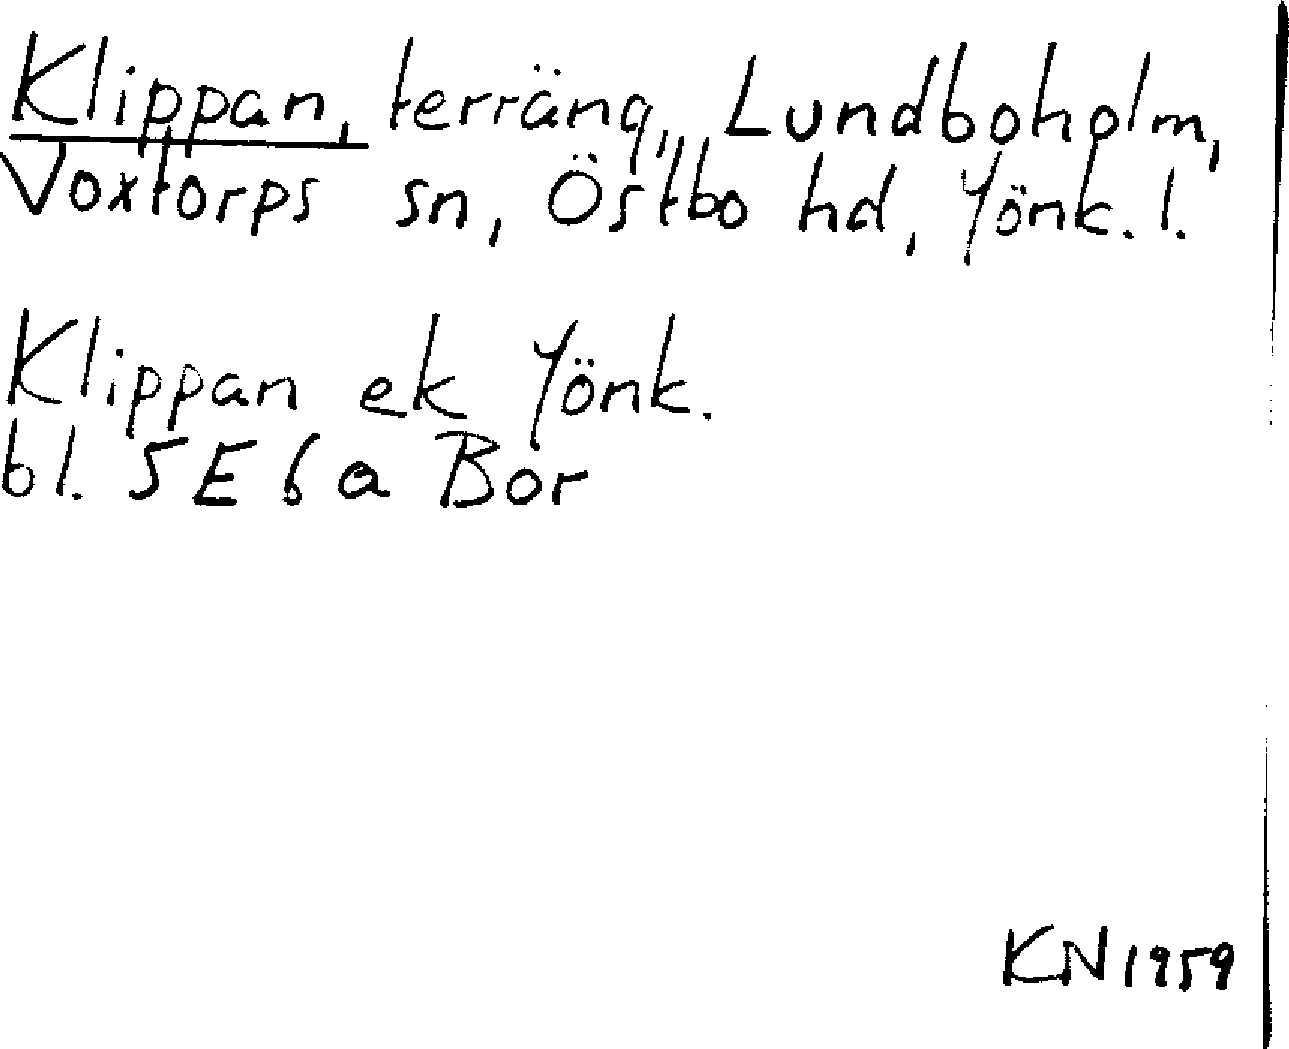 Klippan, terräng, Lundboholm,
Voxtorps sn, Östbo hd, Jönk. l.
Klippan ek Jönk.
bl. 5E6a Bor
KN 1959